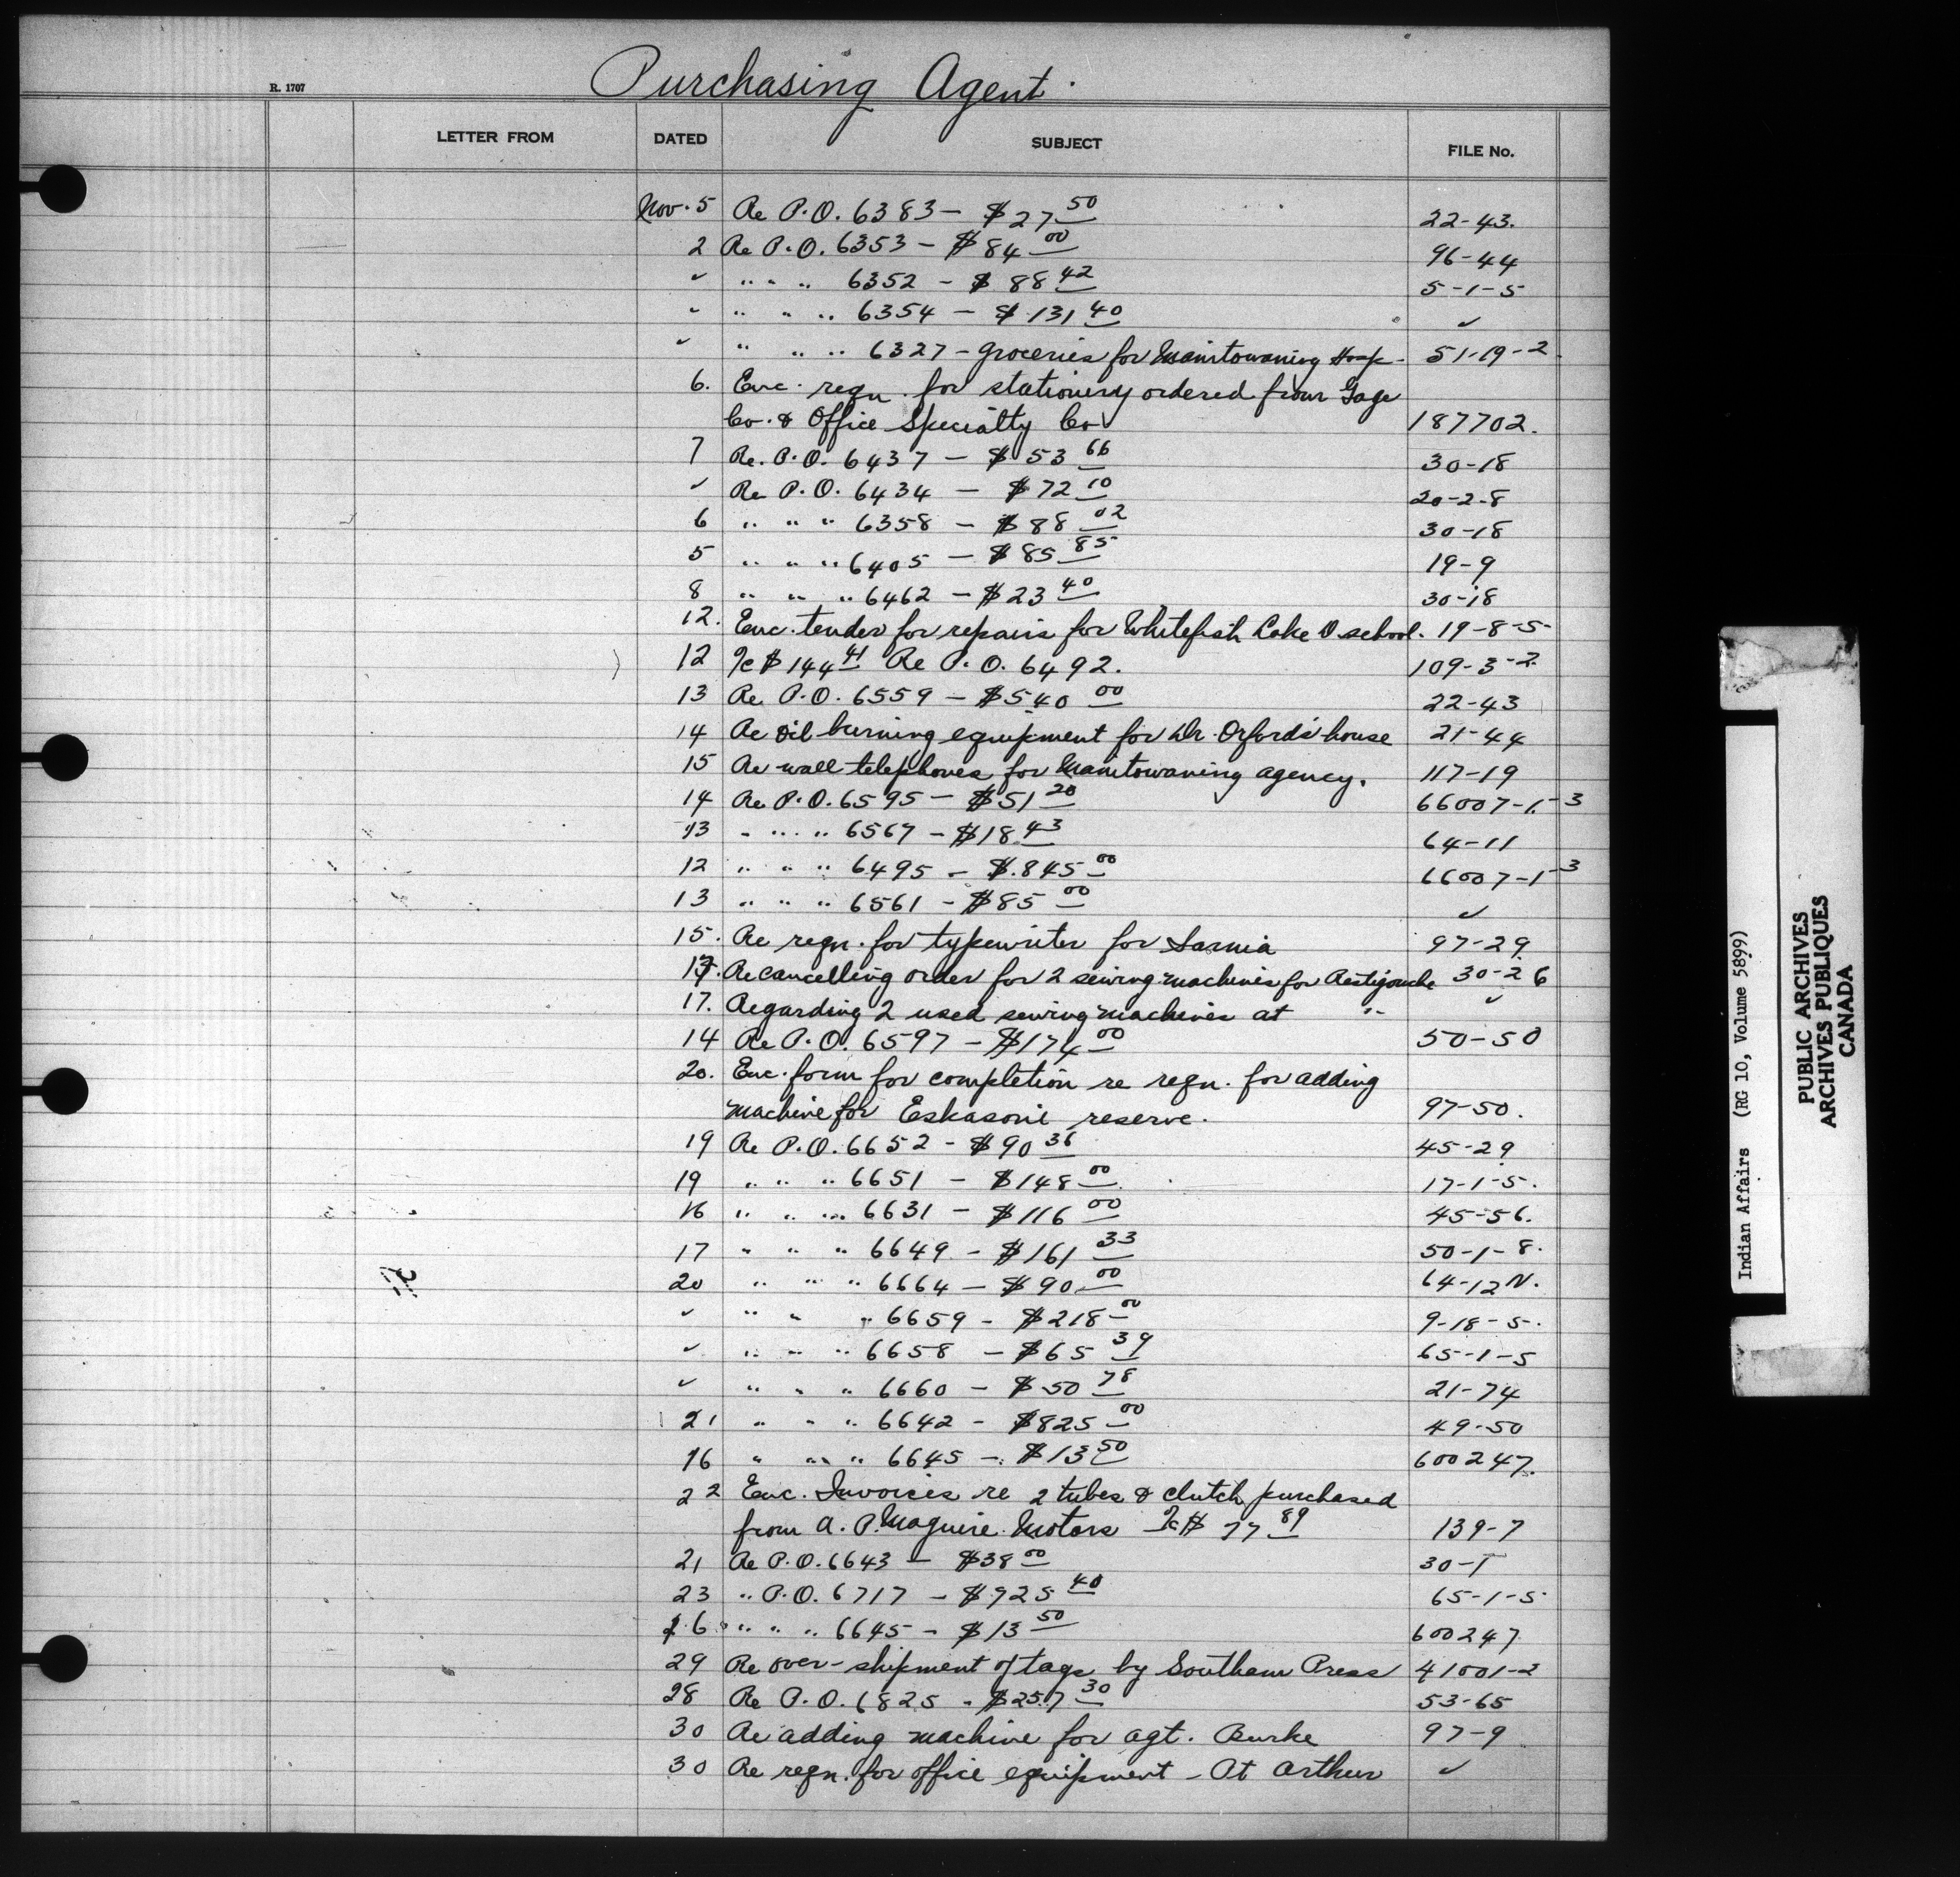 Purchasing Agent.
R. 1707
LETTER FROM DATED SUBJECT FILE No.
Nov. 5 Re P.O. 6383 - $27 50 22-43.
2 Re P.O. 6353 - $84 00 96-44
✓ " " " 6352 - $88 42 5-1-5
" " " " 6354 - $131 40 ✓
✓ " " " 6327 - groceries for Manitowaning Hosp. 51-19-2
6. Enc. reqn. for stationery ordered from Gage
Co. & Office Specialty Co 187702.
7 Re. P.O. 6437 - $53 66 30-18
✓ Re P.O. 6434 - $72 10 20-2-8
6 " " " 6358 - $88 02 30-18
5 " " " 6405 - $85 85 19-9
8 " " " 6462 - $23 40 30-18
12. Enc. tender for repairs for Whitefish Lake D. school. 19-8-5
12 Ic $144 41 Re P.O. 6492. 109-3-2
13 Re P.O. 6559 - $540 00 22-43
14 Re oil burning equipment for Dr. Orford's house 21-44
15 Re wall telephones for Manitowaning agency. 117-19
14 Re P.O. 6595 - $51 20 66007-1-3
13 " " " 6567 - $18 43 64-11
12 " " " 6495 - $845 00 66007-1-3
13 " " " 6561 - $85 00 ✓
15. Re reqn. for typewriter for Sarnia 97-29
Re cancelling order for 2 sewing machines for Restigouche 30-26
17. Regarding 2 used sewing machines at " ✓
14 Re P.O. 6597 - $174 00 50-50
20. Enc. form for completion re reqn. for adding
machine for Eskasoni reserve. 97-50.
19 Re P.O. 6652 - $90 36 45-29
19 " " " 6651 - $148 00 17-1-5.
16 " " " 6631 - $116 00 45-56.
17 " " " 6649 - $161 33 50-1-8.
20 " " " 6664 - $90 00 64-12N.
✓ " " " 6659 - $218 00 9-18-5.
✓ " " " 6658 - $65 39 65-1-5
✓ " " " 6660 - $50 78 21-74
21 " " " 6642 - $825 00 49-50
16 " " " 6645 - $13 50 600247.
22 Enc. Invoices re 2 tubes & clutch purchased
from A. P. Maguire Motors Ic $77 89 139-7
21 Re P.O. 6643 - $38 00 30-1
23 " P.O. 6717 - $925 40 65-1-5
16 " " " 6645 - $13 50 600247
29 Re over-shipment of tags by Southam Press 41001-2
28 Re P.O. 6825 - $257 30 53-65
30 Re adding machine for agt. Burke 97-9
30 Re reqn. for office equipment - Pt Arthur ✓
Indian Affairs (RG 10, Volume 5899)
PUBLIC ARCHIVES
ARCHIVES PUBLIQUES
CANADA